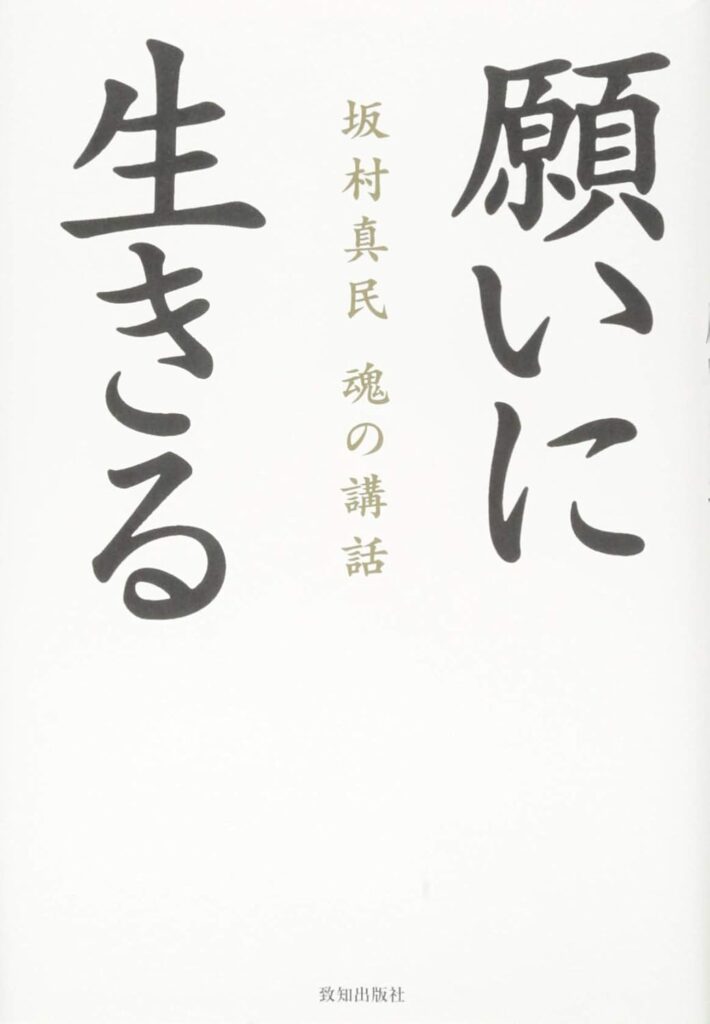 願いに
坂村真民 魂の講話
生きる
致知出版社